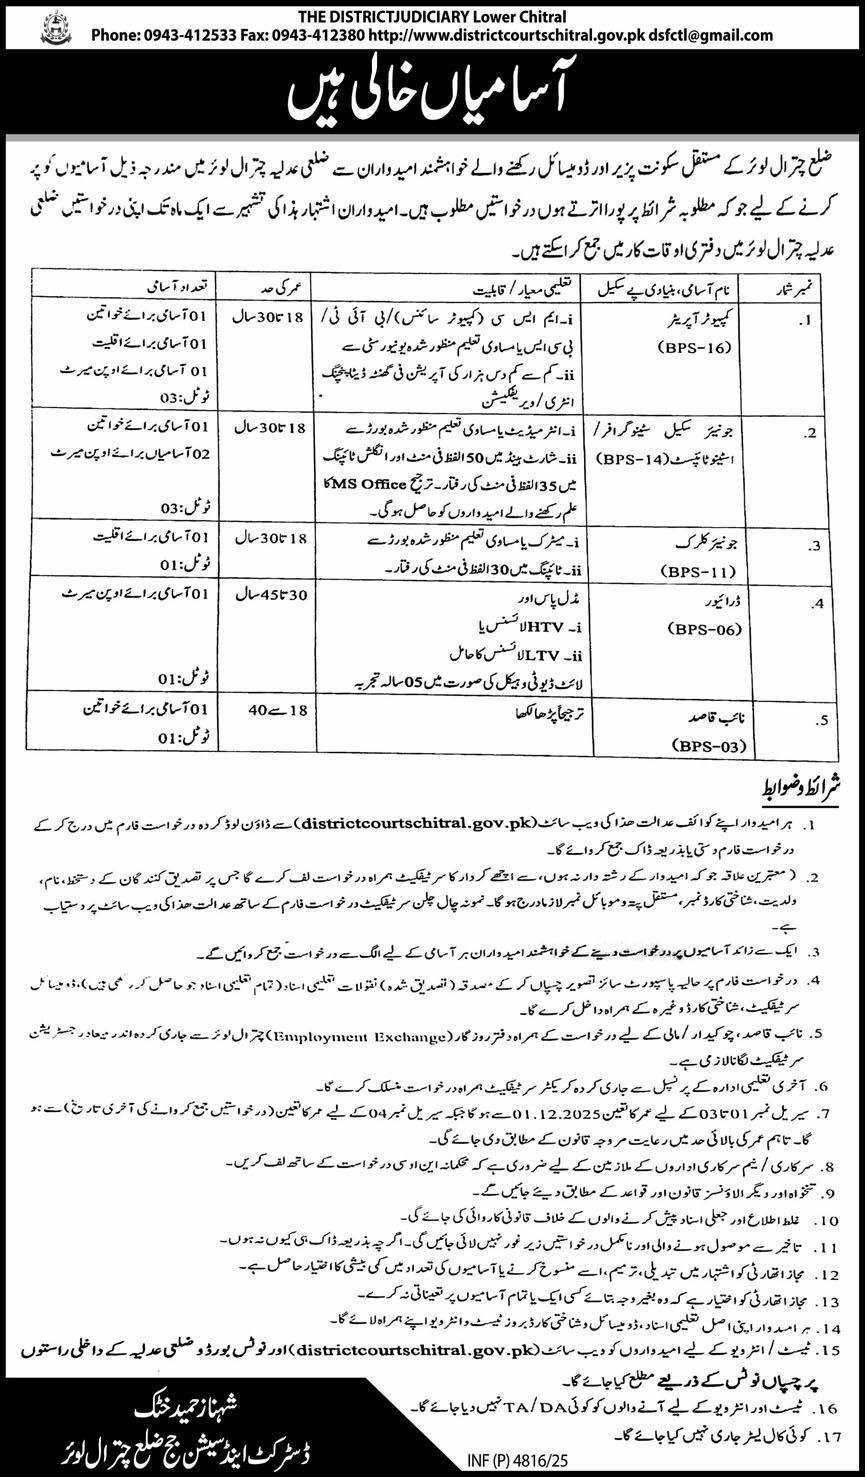 THE DISTRICTJUDICIARY Lower Chitral
Phone: 0943-412533 Fax: 0943-412380 http://www.districtcourtschitral.gov.pk dsfctl@gmail.com
آسامیاں خالی ہیں
ضلع چترال لوئر کے مستقل سکونت پزیر اور ڈومیسائل رکھنے والے خواہشمند امیدواران سے ضلعی عدلیہ چترال لوئر میں مندرجہ ذیل آسامیوں کو پر
کرنے کے لیے جو کہ مطلوبہ شرائط پر پورا اترتے ہوں درخواستیں مطلوب ہیں۔ امیدواران اشتہار ہذا کی تشہیر سے ایک ماہ تک اپنی درخواستیں ضلعی
عدلیہ چترال لوئر میں دفتری اوقات کار میں جمع کراسکتے ہیں۔
نمبر شمار نام آسامی، بنیادی پے سکیل تعلیمی معیار / قابلیت عمر کی حد تعداد آسامی
1. کمپیوٹر آپریٹر (BPS-16)
i۔ ایم ایس سی (کمپیوٹر سائنس)/ بی آئی ٹی/
بی سی ایس یا مساوی تعلیم منظور شدہ یونیورسٹی سے
ii۔ کم سے کم دس ہزار کی آپریشن فی گھنٹہ ڈیٹا پنچنگ
انٹری/ویریفکیشن
18 تا 30 سال
01 آسامی برائے خواتین
01 آسامی برائے اقلیت
01 آسامی برائے اوپن میرٹ
ٹوٹل: 03
2. جونیئر سکیل سٹینو گرافر/
اسٹینو ٹائپسٹ (BPS-14)
i۔ انٹرمیڈیٹ یا مساوی تعلیم منظور شدہ بورڈ سے
ii۔ شارٹ ہینڈ میں 50 الفظ فی منٹ اور انگلش ٹائپنگ
میں 35 الفظ فی منٹ کی رفتار۔ ترجیح MS Office کا
علم رکھنے والے امیدواروں کو حاصل ہوگی۔
18 تا 30 سال
01 آسامی برائے خواتین
02 آسامیاں برائے اوپن میرٹ
ٹوٹل: 03
3. جونیئر کلرک
(BPS-11)
i۔ میٹرک یا مساوی تعلیم منظور شدہ بورڈ سے
ii۔ ٹائپنگ میں 30 الفظ فی منٹ کی رفتار۔
18 تا 30 سال
01 آسامی برائے اقلیت
ٹوٹل: 01
4. ڈرائیور
(BPS-06)
مڈل پاس اور
i۔ HTV لائسنس یا
ii۔ LTV لائسنس کا حامل
لائٹ ڈیوٹی وہیکل کی صورت میں 05 سالہ تجربہ
30 تا 45 سال
01 آسامی برائے اوپن میرٹ
ٹوٹل: 01
5. نائب قاصد
(BPS-03)
ترجیحاً پڑھا لکھا
18 سے 40
01 آسامی برائے خواتین
ٹوٹل: 01
شرائط و ضوابط
1. ہر امیدوار اپنے کوائف عدالت ھذا کی ویب سائٹ (districtcourtschitral.gov.pk) سے ڈاؤن لوڈ کردہ درخواست فارم میں درج کر کے
درخواست فارم دستی یا بذریعہ ڈاک جمع کروائے گا۔
2. (معتبرین علاقہ جو کہ امیدوار کے رشتہ دار نہ ہوں، سے اچھے کردار کا سرٹیفکیٹ ہمراہ درخواست لف کرے گا جس پر تصدیق کنندگان کے دستخط، نام،
ولدیت، شناختی کارڈ نمبر، مستقل پتہ و موبائل نمبر لازماً درج ہوگا۔ نمونہ چال چلن سرٹیفکیٹ درخواست فارم کے ساتھ عدالت ھذا کی ویب سائٹ پر دستیاب
ہے۔
3. ایک سے زائد آسامیوں پر درخواست دینے کے خواہشمند امیدواران ہر آسامی کے لیے الگ سے درخواست جمع کروائیں گے۔
4. درخواست فارم پر حالیہ پاسپورٹ سائز تصویر چسپاں کر کے مصدقہ (تصدیق شدہ) نقولات تعلیمی اسناد (تمام تعلیمی اسناد جو حاصل کر رکھی ہیں)، ڈومیسائل
سرٹیفکیٹ، شناختی کارڈ وغیرہ کے ہمراہ داخل کرے گا۔
5. نائب قاصد، چوکیدار / مالی کے لیے درخواست کے ہمراہ دفتر روزگار (Employment Exchange) چترال لوئر سے جاری کردہ اندر میعاد رجسٹریشن
سرٹیفکیٹ لگانا لازمی ہے۔
6. آخری تعلیمی ادارہ کے پرنسپل سے جاری کردہ کریکٹر سرٹیفکیٹ ہمراہ درخواست منسلک کرے گا۔
7. سیریل نمبر 01 تا 03 کے لیے عمر کا تعین 01.12.2025 سے ہوگا جبکہ سیریل نمبر 04 کے لیے عمر کا تعین (درخواستیں جمع کروانے کی آخری تاریخ) سے ہو
گا۔ تاہم عمر کی بالائی حد میں رعایت مروجہ قانون کے مطابق دی جائے گی۔
8. سرکاری / نیم سرکاری اداروں کے ملازمین کے لیے ضروری ہے کہ محکمانہ این او سی درخواست کے ساتھ لف کریں۔
9. تنخواہ اور دیگر الاؤنسز قانون اور قواعد کے مطابق دیئے جائیں گے۔
10. غلط اطلاع اور جعلی اسناد پیش کرنے والوں کے خلاف قانونی کاروائی کی جائے گی۔
11. تاخیر سے موصول ہونے والی اور نامکمل درخواستیں زیر غور نہیں لائی جائیں گی۔ اگرچہ بذریعہ ڈاک ہی کیوں نہ ہوں۔
12. مجاز اتھارٹی کو اشتہار میں تبدیلی، ترمیم، اسے منسوخ کرنے یا آسامیوں کی تعداد میں کمی بیشی کا اختیار حاصل ہے۔
13. مجاز اتھارٹی کو اختیار ہے کہ وہ بغیر وجہ بتائے کسی ایک یا تمام آسامیوں پر تعیناتی نہ کرے۔
14. ہر امیدوار اپنی اصل تعلیمی اسناد، ڈومیسائل و شناختی کارڈ بروز ٹیسٹ و انٹرویو اپنے ہمراہ لائے گا۔
15. ٹیسٹ / انٹرویو کے لیے امیدواروں کو ویب سائٹ (districtcourtschitral.gov.pk) اور نوٹس بورڈ و ضلعی عدلیہ کے داخلی راستوں
پر چسپاں نوٹس کے ذریعے مطلع کیا جائے گا۔
16. ٹیسٹ اور انٹرویو کے لیے آنے والوں کو کوئی TA/DA نہیں دیا جائے گا۔
17. کوئی کال لیٹر جاری نہیں کیا جائے گا۔
شہناز حمید خٹک
ڈسٹرکٹ اینڈ سیشن جج ضلع چترال لوئر
INF (P) 4816/25